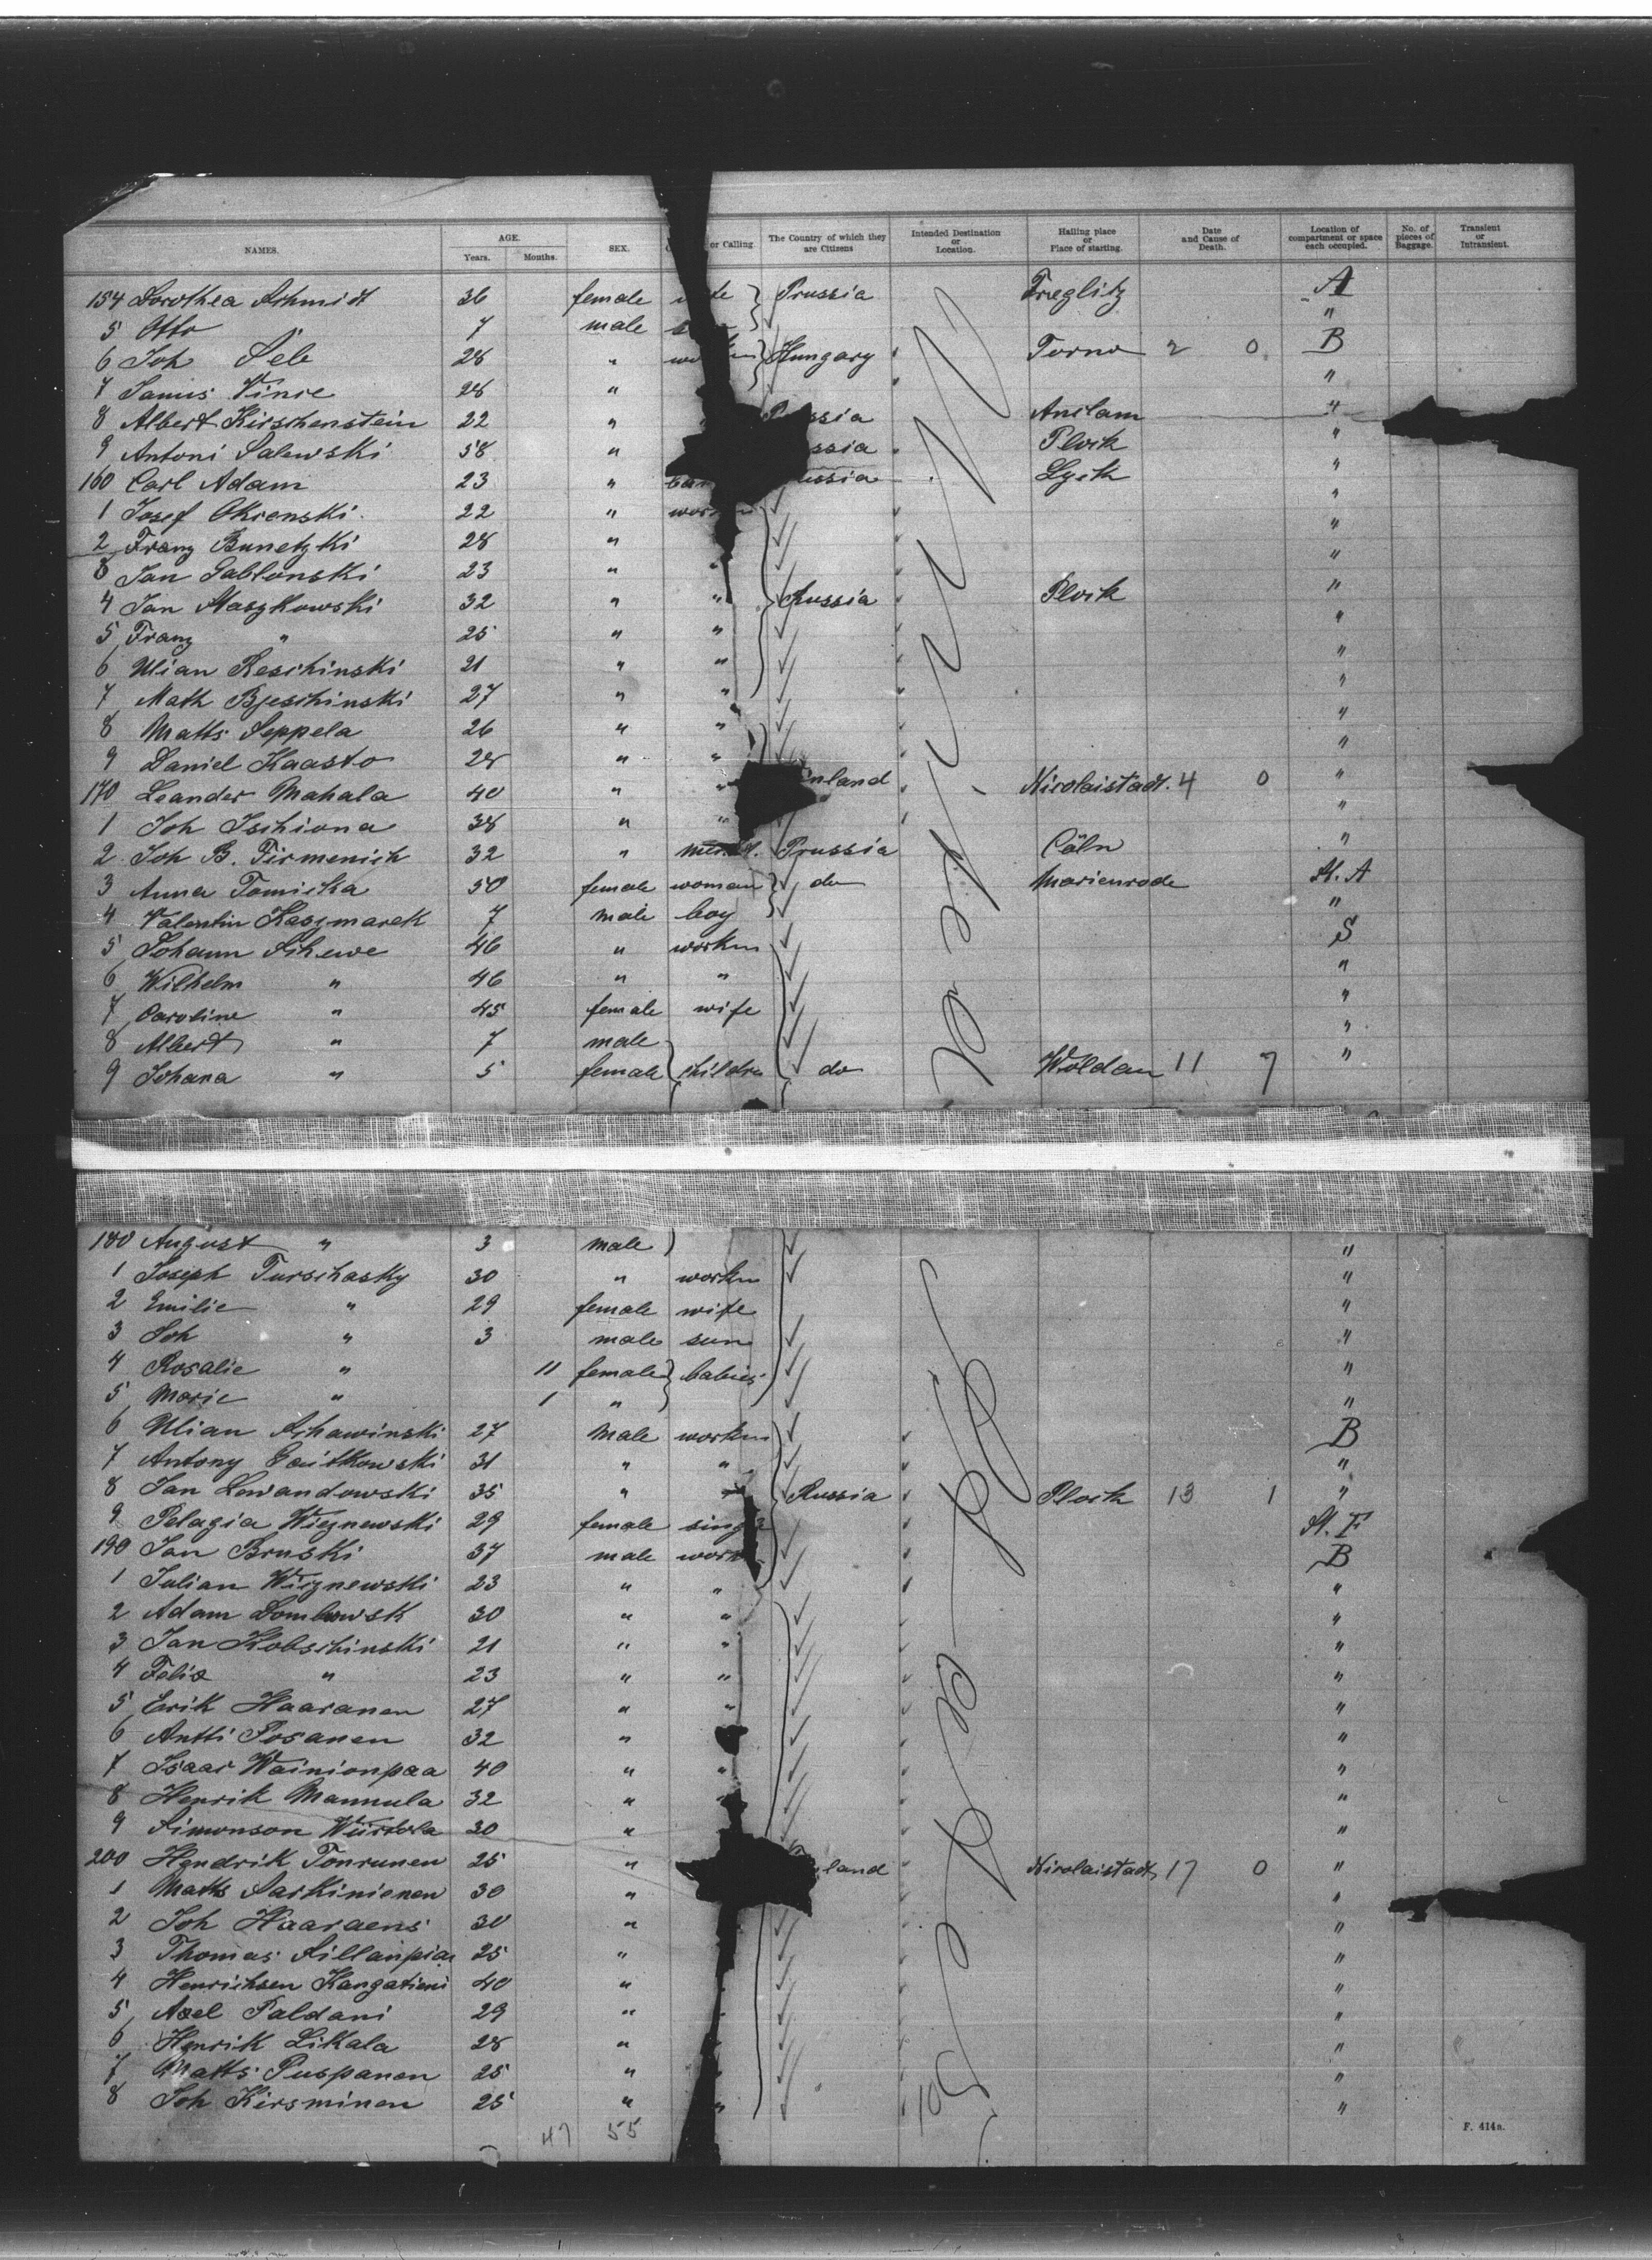 NAMES. AGE. Years. Months. SEX. or Calling. The Country of which they are Citizens Intended Destination or Location. Hailing place or Place of starting. Date and Cause of Death. Location of compartment or space each occupied. No. of pieces of Baggage. Transient or Intransient.
154 Dorothea Schmidt 36 female Prussia Treglitz A
5 Otto 7 male "
6 Joh 28 " Hungary Torno 2 0 B
7 Janus Vinre 28 " "
8 Albert Kirschenstein 22 " ssia Anclam "
9 Antoni Salewski 58 " ssia Plock "
160 Carl Adam 23 " ussia Lyck "
1 Josef Okrenski 22 " "
2 Franz Bunetzki 28 " "
3 Jan Jablonski 23 " " "
4 Jan Maszkowski 32 " " Russia Plock "
5 Franz " 25 " " "
6 Ulian Reschinski 21 " " "
7 Math Bjeschinski 27 " " "
8 Matts Seppela 26 " " "
9 Daniel Kaasto 28 " " "
170 Leander Mahala 40 " " inland Nicolaistadt. 4 0 "
1 Joh Ischiona 38 " " "
2 Joh B. Firmenich 32 " Prussia Cöln "
3 Anna Tomicka 50 female woman do Marienrode St. A
4 Valentin Kaszmarek 7 male boy "
5 Johann Schewe 46 " workm S
6 Wilhelm " 46 " " "
7 Caroline " 45 female wife "
8 Albert " 7 male "
9 Johana " 5 female childre do Woldan 11 7 "
180 August " 3 male "
1 Joseph Turschasky 30 " workm "
2 Emilie " 29 female wife "
3 Joh " 3 male sun "
4 Rosalie " 11 female babies "
5 Marie " 1 " "
6 Ulian Schawinski 27 male workm B
7 Antony Gaitkowski 31 " " "
8 Jan Lewandowski 35 " " Russia Plock 13 1 "
9 Pelagia Wieznewski 29 female St. F
190 Jan Bruski 37 male B
1 Julian Wieznewski 23 " " "
2 Adam Dombowsk 30 " " "
3 Jan Kobschinski 21 " " "
4 Felix " 23 " " "
5 Erik Haaranen 27 " " "
6 Antti Posanen 32 " "
7 Isaac Wainionpaa 40 " " "
8 Henrik Mannula 32 " "
9 Simonson Wiirtola 30 " "
200 Hendrik Tonrunen 25 " land Nicolaistadt 17 0 "
1 Matts Sarkinienen 30 " "
2 Joh Haaraens 30 " "
3 Thomas Sillanpiaa 25 " "
4 Henrichsen Kangatieni 40 " "
5 Axel Paldani 29 " "
6 Henrik Likala 28 " "
7 Matts Puspanen 25 " "
8 Joh Kirsminen 25 " " "
47 55
F. 414a.